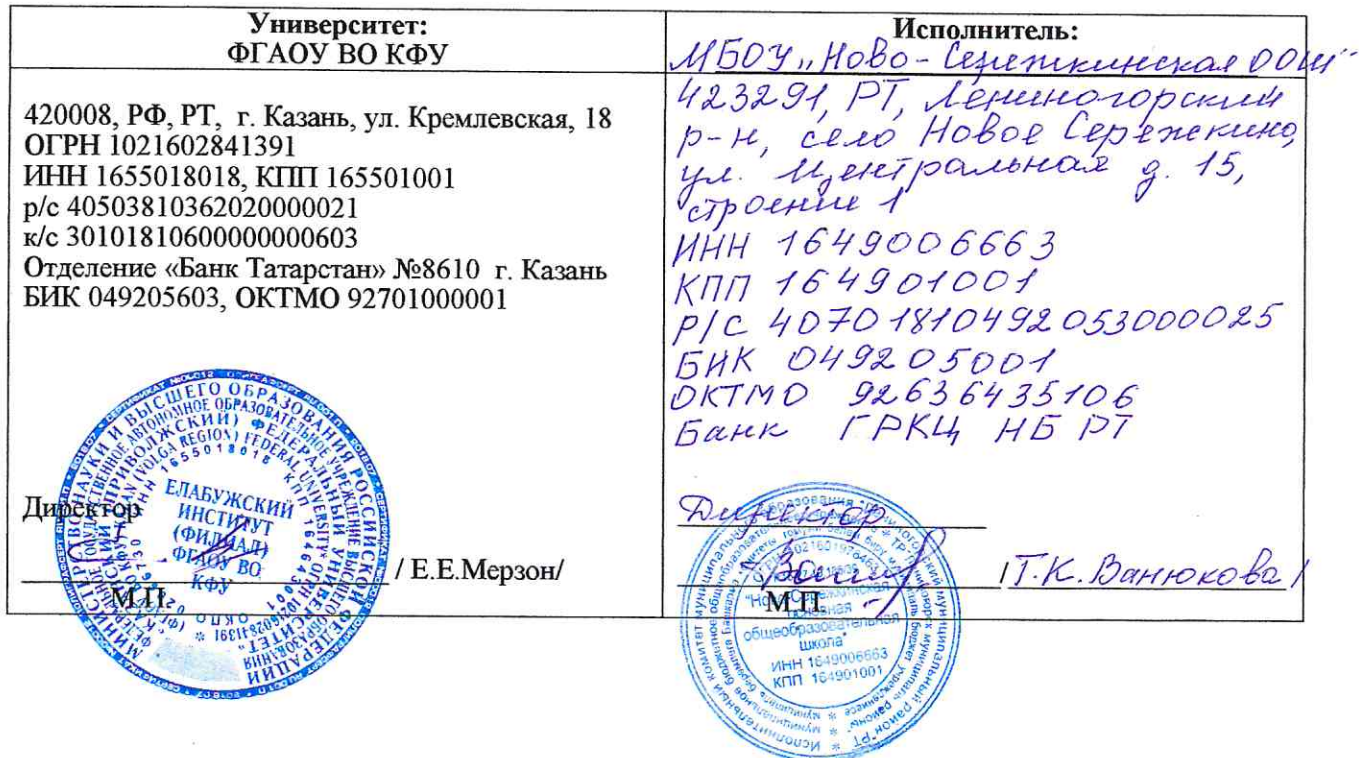 Университет:
ФГАОУ ВО КФУ
420008, РФ, РТ, г. Казань, ул. Кремлевская, 18
ОГРН 1021602841391
ИНН 1655018018, КПП 165501001
р/с 40503810362020000021
к/с 30101810600000000603
Отделение «Банк Татарстан» №8610 г. Казань
БИК 049205603, ОКТМО 92701000001
Директор
/ Е.Е.Мерзон/
М.П.
ЕЛАБУЖСКИЙ
ИНСТИТУТ
(ФИЛИАЛ)
ФГАОУ ВО
КФУ
Исполнитель:
МБОУ „Ново-Сережкинская ООШ“
423291, РТ, Лениногорский
р-н, село Новое Сережкино,
ул. Центральная д. 15,
строение 1
ИНН 1649006663
КПП 164901001
Р/С 40701810492053000025
БИК 049205001
ОКТМО 92636435106
Банк ГРКЦ НБ РТ
Директор
/Т.К. Ванюкова/
М.П.
"Ново-Сережкинская
основная
общеобразовательная
школа"
ИНН 1649006663
КПП 164901001